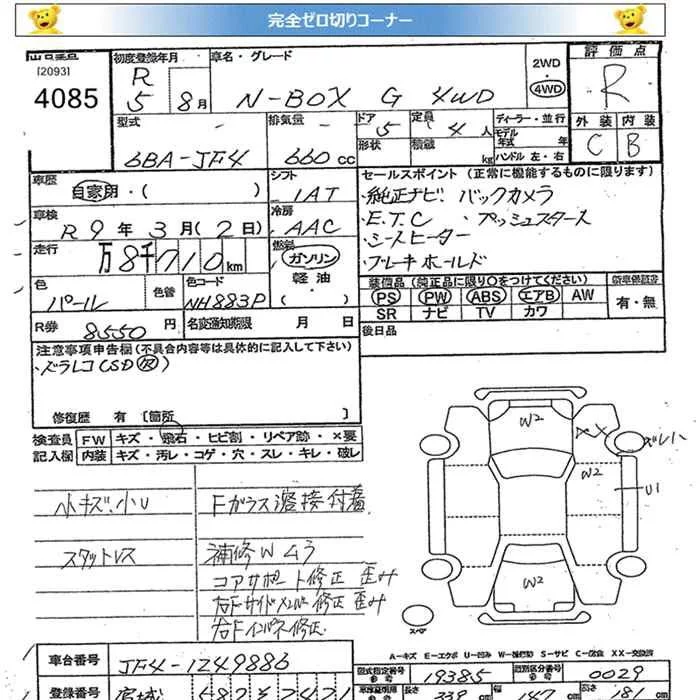 完全ゼロ切りコーナー
[2093]
4085
初度登録年月
R 5 8月
車名・グレード
N-BOX G 4WD
2WD
4WD
評価点
R
型式
6BA-JF4
排気量
660cc
ドア 5
定員 4人
形状
積載 kg
ディーラー・並行
モデル年式 年
ハンドル 左・右
外装 内装
C B
車歴
自家用・( )
シフト
IAT
車検
R9年3月(2日)
冷房
AAC
走行
万8千710km
燃料
ガソリン
軽油
・( )
色
パール
色替
色コード
NH883P
セールスポイント (正常に機能するものに限ります)
・純正ナビ・バックカメラ
・E.T.C ・プッシュスタース
・シートヒーター
・ブレーキホールド
装備品(純正品に限り○をつけてください)
PS PW ABS エアB AW
SR ナビ TV カワ
新車保証書
有・無
R券 8550円
名変通知期限 月 日
後日品
注意事項申告欄(不具合内容等は具体的に記入して下さい)
ドラレコ(SD欠)
修復歴 有 [箇所 ]
検査員記入欄
FW キズ・飛石・ヒビ割・リペア跡・×要
内装 キズ・汚レ・コゲ・穴・スレ・キレ・破レ
小キズ・小U
Fガラス溶接付着
スタットレス
補修Wムラ
コアサポート修正 歪み
右Fサイドメンバー修正 歪み
右Fインパネ修正
W2
W2
ズレハ
U1
W2
スペア
A-キズ E-エクボ U-凹み W-補修跡 S-サビ C-腐食 XX-交換済
車台番号
JF4-1249886
型式指定番号
19385
類別区分番号
0029
登録番号
宮城 582 そ 2421
339 147 181